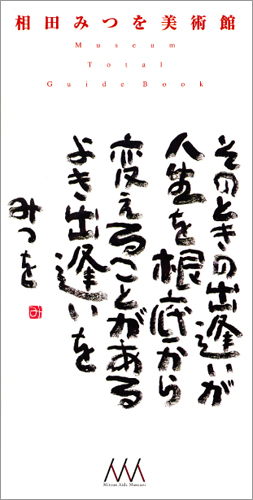 相田みつを美術館
Museum
Total
Guide Book
そのときの出逢いが
人生を根底から
変えることがある
よき出逢いを
みつを
み
Mitsuo Aida Museum